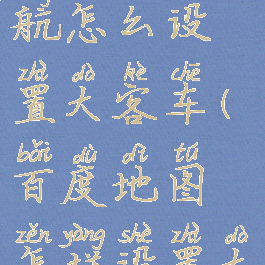 航怎么设
zhì dà kè chē
置大客车(
bǎi dù dì tú
百度地图
zěn yàng shè zhì dà
怎样设置大